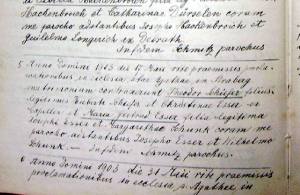 Hackenbroich et Catharinae Dürselen coram
me parocho adstantibus Josepho Hackenbroich et
Guilelmo Longerich ex Delrath
In fidem Schmitz parochus
5 Anno Domini 1903 die 17 rite praemissis procla-
mationibus in ecclesia Stae Agathae in
matrimonium contraxerunt Theodor Schäfer filius
legitimus Schäfer et Christinae Esser ex
et Maria Esser filia legitima
Josephi Esser et Margarethae Schunk coram me
parocho adstantibus Josepho Esser et Wilhelmo
Schunk. — In fidem Schmitz parochus.
6 Anno Domini 1903 die 31 rite praemissis
proclamationibus in ecclesia s. Agathae in